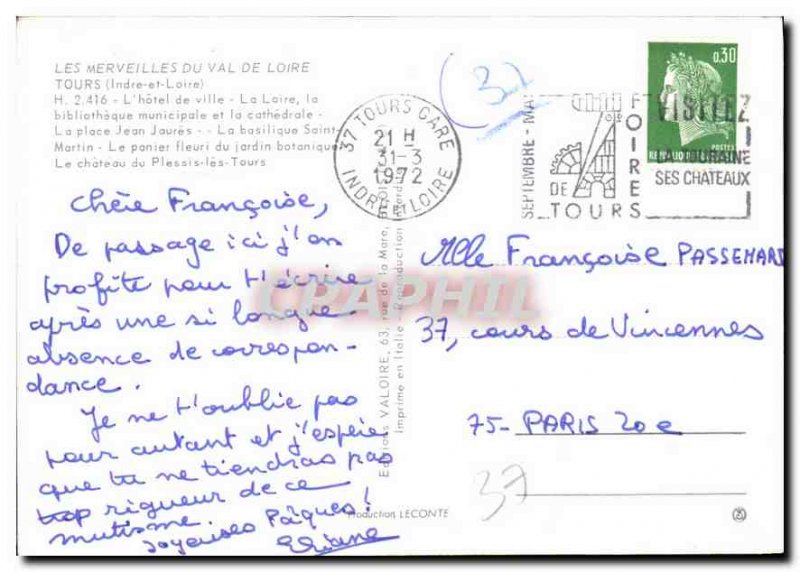 LES MERVEILLES DU VAL DE LOIRE
TOURS (Indre-et-Loire)
H. 2.416 - L'hôtel de ville - La Loire, la
bibliothèque municipale et la cathédrale -
La place Jean Jaurès - - La basilique Saint-
Martin - Le panier fleuri du jardin botanique
Le château du Plessis-lès-Tours
(37)
37 TOURS GARE
21 H
31-3
1972
INDRE ET LOIRE
SEPTEMBRE - MAI
FOIRES
DE
TOURS
VISITEZ
LA TOURAINE
SES CHATEAUX
0,30
POSTES
Chère Françoise,
De passage ici j'en
profite pour t'écrire
après une si longue
absence de correspon-
dance.
Je ne t'oublie pas
pour autant et j'espère
que tu ne tiendras pas
trop rigueur de ce
mutisme.
Joyeuses Pâques!
Eliane
Editions VALOIRE, 63, rue de la Mare,
Imprime en Italie - Reproduction
Mlle Françoise PASSEMARD
37, cours de Vincennes
75- PARIS 20e
37
Production LECONTE
CPAPHIL